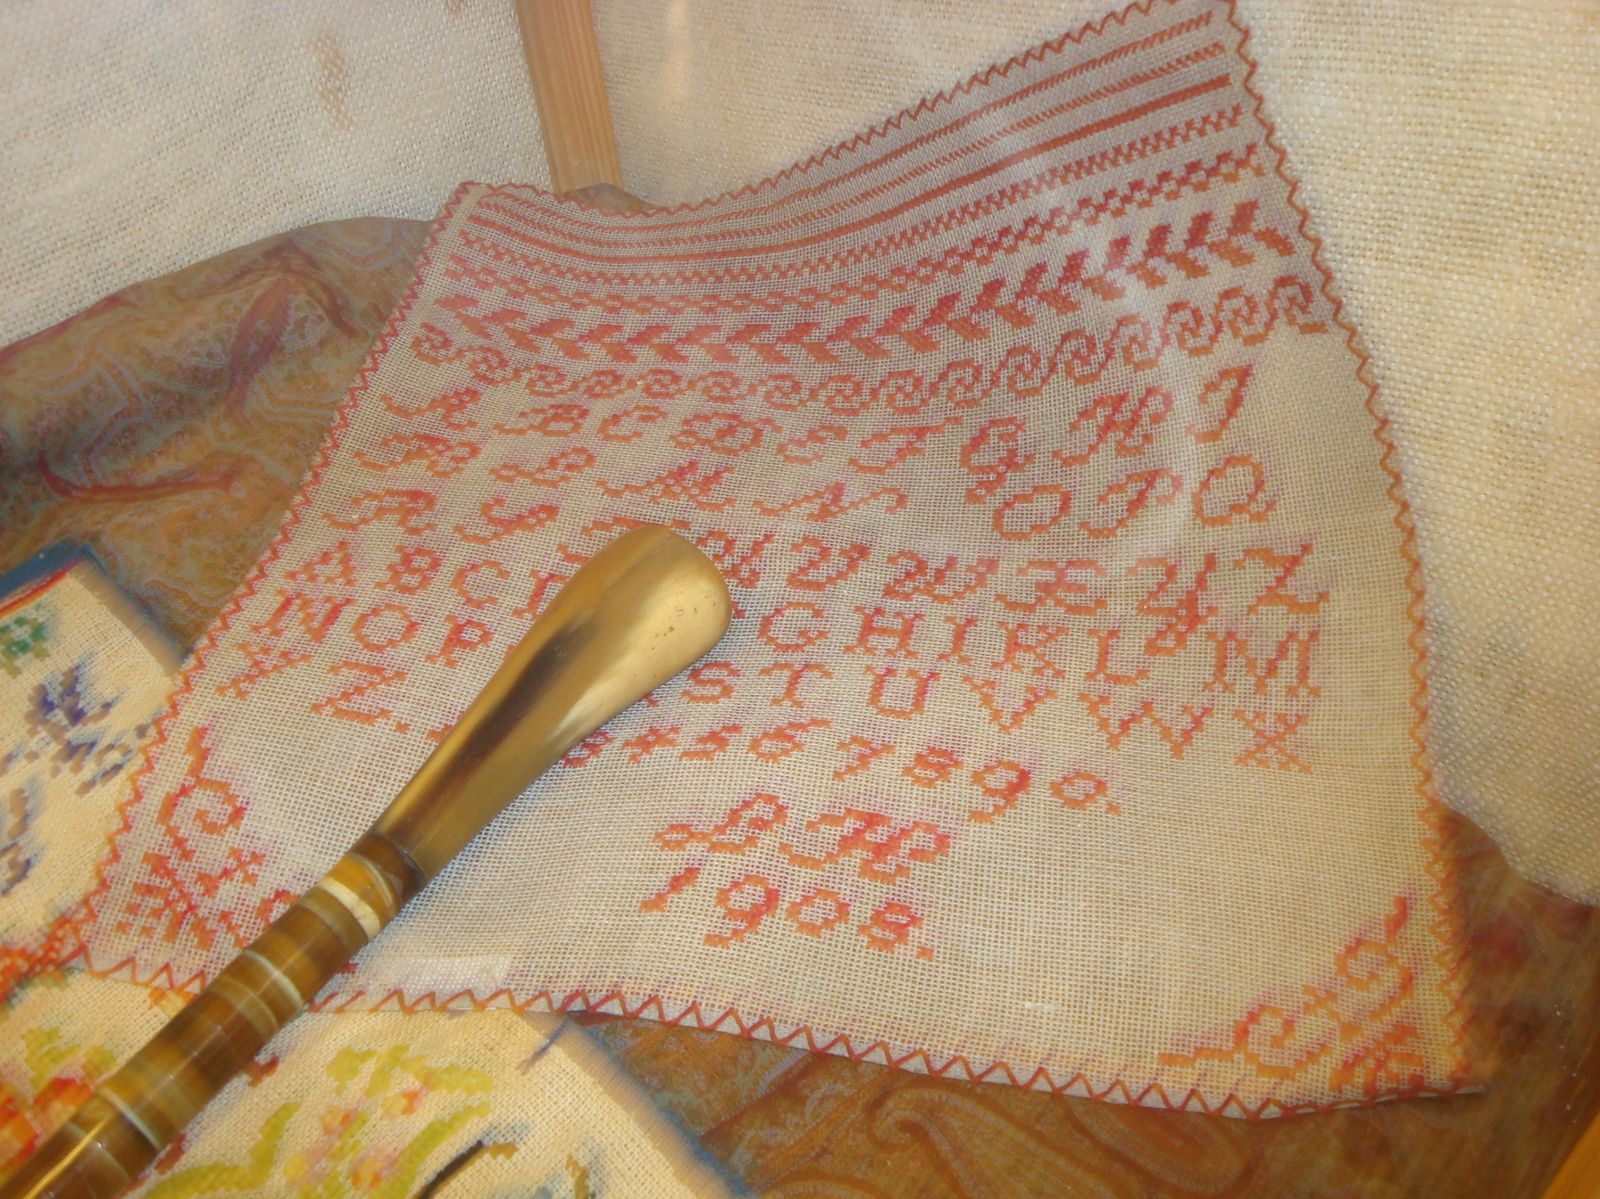 A B C D E F G H I
K L M N O P Q
R S T V W X Y Z
A B C G H I K L M
N O P S T U V W X
Y Z. 4 5 6 7 8 9 0.
L H
1908.